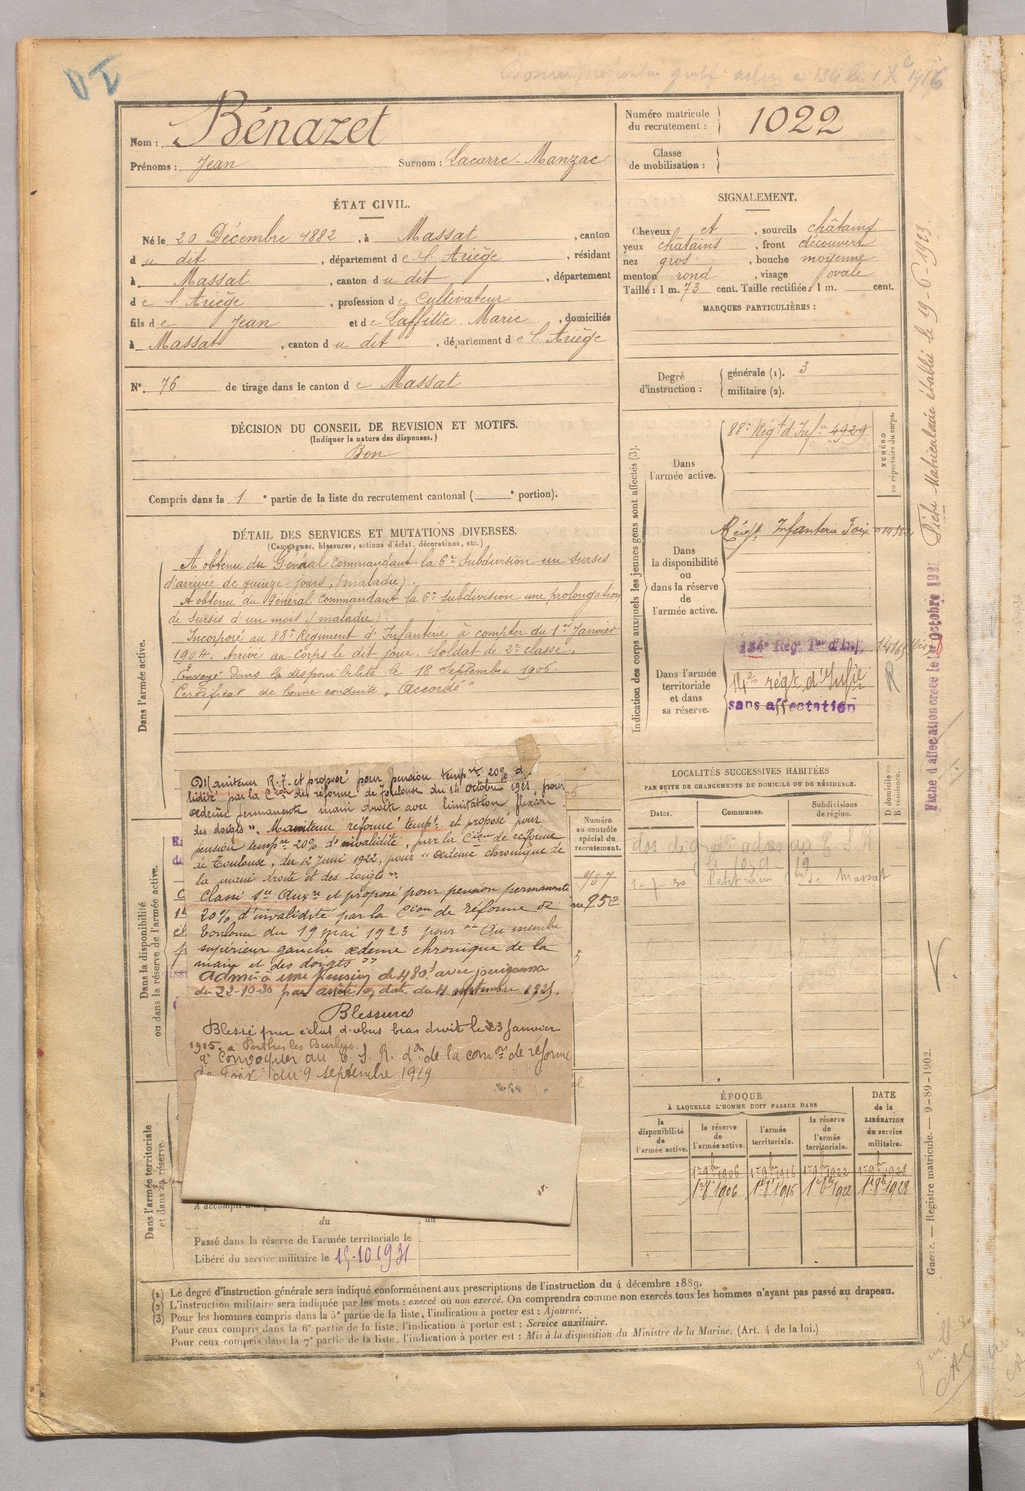 Nom : Bénazet
Prénoms : Jean Surnom : Lacarre-Manzac
Numéro matricule du recrutement : 1022
Classe de mobilisation :
ÉTAT CIVIL.
Né le 20 Décembre 1882, à Massat, canton
du dit, département de l'Ariège, résidant
à Massat, canton du dit, département
de l'Ariège, profession de Cultivateur
fils de Jean et de Laffitte Marie, domiciliés
à Massat, canton du dit, département de l'Ariège
N° 76 de tirage dans le canton de Massat
SIGNALEMENT.
Cheveux et, sourcils châtains
yeux châtains, front découvert
nez gros, bouche moyenne
menton rond, visage ovale
Taille : 1 m. 73 cent. Taille rectifiée : 1 m. cent.
MARQUES PARTICULIÈRES :
Degré d'instruction : générale (1). 3
militaire (2).
DÉCISION DU CONSEIL DE REVISION ET MOTIFS.
(Indiquer la nature des dispenses.)
Bon
Compris dans la 1e partie de la liste du recrutement cantonal ( e portion).
DÉTAIL DES SERVICES ET MUTATIONS DIVERSES.
(Campagnes, blessures, actions d'éclat, décorations, etc.)
Dans l'armée active.
A obtenu du Général Commandant la 6e Subdivision un sursis
d'arrivée de quinze jours, (maladie).
A obtenu du Général Commandant la 6e subdivision une prolongation
de sursis d'un mois, (maladie).
Incorporé au 88e Régiment d'Infanterie à compter du 1er Janvier
1904. Arrivé au Corps le dit jour. Soldat de 2e classe.
Envoyé dans la disponibilité le 18 Septembre 1906.
Certificat de bonne conduite "Accordé"
Dans la disponibilité
ou dans la réserve de l'armée active.
Maintenu R. T. et proposé pour pension tempre 20% d
lidité par la Cion de réforme de Toulouse du 14 octobre 1921, pour
œdème permanente main droite avec limitation flexion
des doigts". Maintenu réformé tempre et proposé pour
pension tempre 20% d'invalidité, par la Cion de réforme
de Toulouse, du 12 Juin 1922, pour "œdème chronique de
la main droite et des doigts".
Classé Sce Auxre et proposé pour pension permanente
20% d'invalidité par la Cion de réforme de
Toulouse du 19 mai 1923 pour "Au membre
supérieur gauche œdème chronique de la
main et des doigts"
Admis à une pension de 480f avec jouissance
du 22-10-20 par arrêté en date du 4 septembre 1925.
Blessures
Blessé par éclat d'obus bras droit le 23 Janvier
1915 à Perthes les Hurlus.
à convoquer au C. S. R. de la comon de réforme
de Foix du 9 septembre 1919
Dans l'armée territoriale
et dans sa réserve.
du
Passé dans la réserve de l'armée territoriale le
Libéré du service militaire le 15-10-1931
Indication des corps auxquels les jeunes gens sont affectés (3).
Dans l'armée active.
88e Régt d'Infie 4929
NUMÉRO au répertoire du corps.
Dans la disponibilité ou dans la réserve de l'armée active.
Régt Infanterie Foix
Dans l'armée territoriale et dans sa réserve.
134e Rég. Ter d'Inf.
14e régt d'Infie
sans affectation
R
LOCALITÉS SUCCESSIVES HABITÉES
PAR SUITE DE CHANGEMENTS DE DOMICILE OU DE RÉSIDENCE.
Dates. Communes. Subdivisions de région. D domicile ou R résidence.
1-7-20 Massat
Numéro au contrôle spécial du recrutement.
ÉPOQUE
À LAQUELLE L'HOMME DOIT PASSER DANS
la disponibilité de l'armée active. la réserve de l'armée active. l'armée territoriale. la réserve de l'armée territoriale.
DATE de la LIBÉRATION du service militaire.
1er 9bre 1906 1er 9bre 1916 1er 9bre 1922 1er 9bre 1928
1er 8bre 1906 1er 8bre 1916 1er 8bre 1922 1er 8bre 1928
Fiche Matriculaire établie le 19-6-1923.
Fiche d'affectation créée le Octobre 1921
Guerre. — Registre matricule. — 9-89-1902.
(1) Le degré d'instruction générale sera indiqué conformément aux prescriptions de l'instruction du 4 décembre 1889.
(2) L'instruction militaire sera indiquée par les mots : exercé ou non exercé. On comprendra comme non exercés tous les hommes n'ayant pas passé au drapeau.
(3) Pour les hommes compris dans la 5e partie de la liste, l'indication à porter est : Ajourné.
Pour ceux compris dans la 6e partie de la liste, l'indication à porter est : Service auxiliaire.
Pour ceux compris dans la 7e partie de la liste, l'indication à porter est : Mis à la disposition du Ministre de la Marine. (Art. 4 de la loi.)